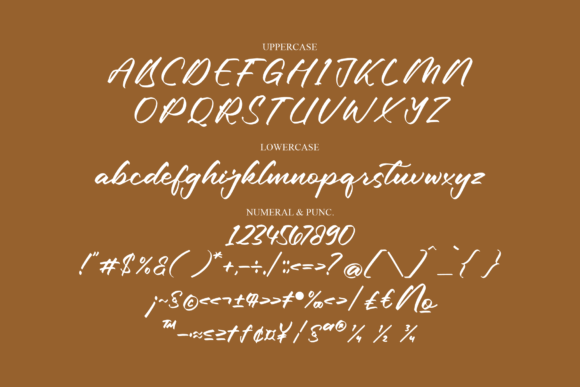 UPPERCASE
ABCDEFGHIJKLMN
OPQRSTUVWXYZ
LOWERCASE
abcdefghijklmnopqrstuvwxyz
NUMERAL & PUNC.
1234567890
!"#$%&( )*+,-÷./:;<=>?@[\]^_`{ }
¡~§©<<¬±¶>>≠•‰<>/₤€№
™−·≈≤≥†ƒ¢¤¥¦§ª®¼ ½ ¾